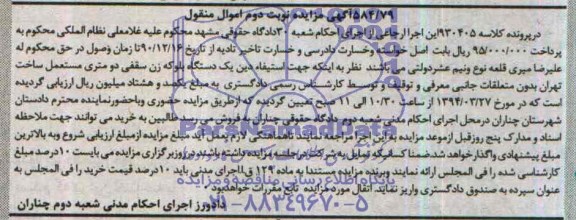 ۵۸۴/۷۹آگهی مزایده نوبت دوم اموال منقول
درپرونده کلاسه ۹۳۰۴۰۵این اجرا ارجاعی از اجرای احکام شعبه ۳۰دادگاه حقوقی مشهد محکوم علیه غلامعلی نظام الملکی محکوم به
پرداخت ۹۵/۰۰۰/۰۰۰ ریال بابت اصل خواسته وخسارت دادرسی و خسارت تاخیر تادیه از تاریخ ۹۰/۱۲/۱۶تا زمان وصول در حق محکوم له
علیرضا میری قلعه نو ونیم عشردولتی می باشند. نظر به اینکه جهت استیفاء دین یک دستگاه بلوکه زن سقفی دو متری مستعمل ساخت
تهران بدون متعلقات جانبی معرفی و توقیف و توسط کارشناس رسمی دادگستری به مبلغ یکصد و هشتاد میلیون ریال ارزیابی گردیده
است که در مورخ ۱۳۹۴/۰۳/۲۷ از ساعت ۱۰/۳۰ الی ۱۱ صبح تعیین گردیده که ازطریق مزایده حضوری وباحضورنماینده محترم دادستان
شهرستان چناران درمحل اجرای احکام مدنی شعبه دوم دادگاه حقوقی چناران به فروش می رسد طالبین به خرید می توانند جهت ملاحظه
اسناد و مدارک پنج روزقبل ازموعد مزایده به این اجرا مراجعه تا هماهنگی لازم بعمل آید مبلغ مزایده ازمبلغ ارزیابی شروع وبه بالاترین
مبلغ پیشنهادی واگذار خواهد شد ضمنا کسانیکه تمایل به شرکت درجلسه مزایده داشته باشند درروزبرگزاری مزایده می بایست ۱۰درصد مبلغ
کارشناسی شده را فی المجلس ارائه نمایند وبرنده مزایده مستندا به ماده ۱۲۹ ق.اجرای مدنی باید ۱۰درصد قیمت خرید را فی المجلس به
عنوان سپرده به صندوق دادگستری واریز نماید. انتقال مورد مزایده تابع مقررات خواهدبود.
دادورز اجرای احکام مدنی شعبه دوم چناران
ParsNamadData
پایگاه اطلاع رسانی مناقصه و مزایده
۰۲۱-۸۸۳۴۹۶۷۰-۵